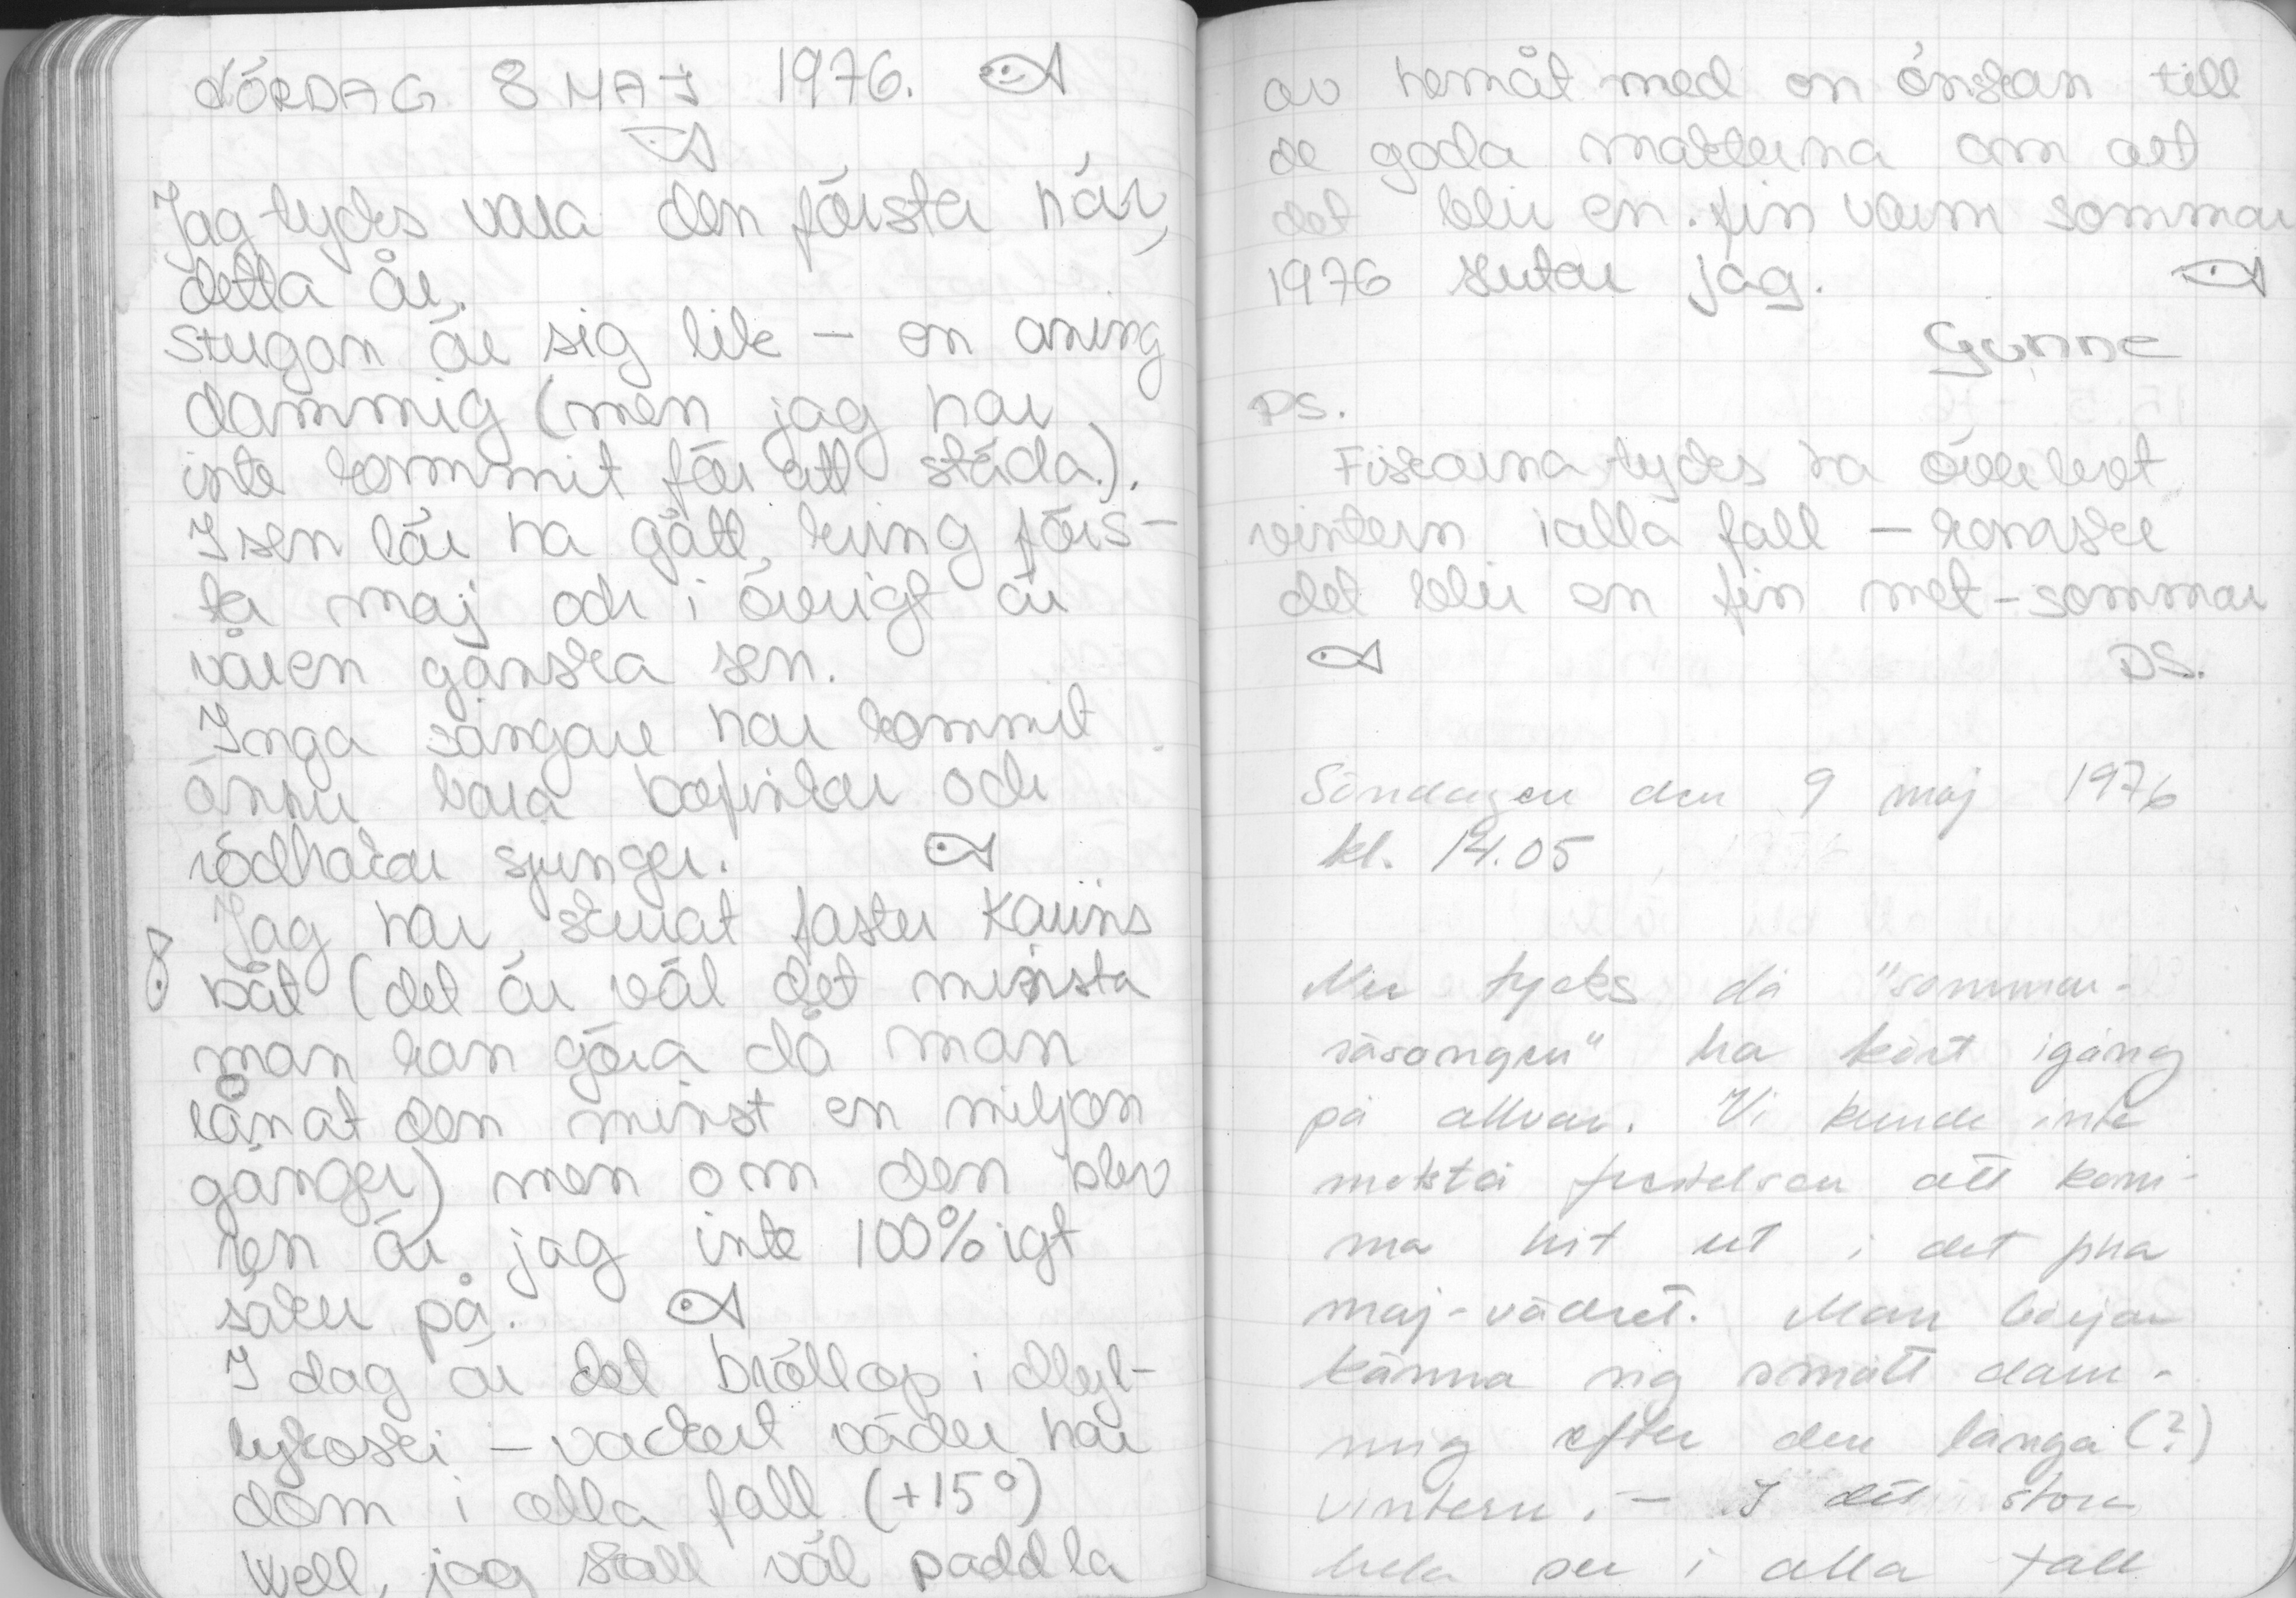 LÖRDAG 8 MAJ 1976.
Jag tycks vara den första här,
detta år.
Stugan är sig lik – en aning
dammig (men jag har
inte kommit för att städa.).
Isen lär ha gått kring förs-
ta maj och i övrigt är
våren ganska sen.
Inga sångare har kommit
ännu bara bofinkar och
rödhakar sjunger.
Jag har skurat faster Karins
båt (det är väl det minsta
man kan göra då man
lånat den minst en miljon
gånger) men om den blev
ren är jag inte 100%igt
säker på.
I dag är det bröllop i Myl-
lykoski – vackert väder har
dom i alla fall (+15°)
Well, jag skall väl paddla
av hemåt med en önskan till
de goda makterna om att
det blir en fin varm sommar
1976 slutar jag.
Gunne
PS.
Fiskarna tycks ha överlevt
vintern ialla fall – kanske
det blir en fin met-sommar
DS.
Söndagen den 9 maj 1976
kl. 14.05
Nu tycks då "sommar-
säsongen" ha kört igång
på allvar. Vi kunde inte
motstå frestelsen att kom-
ma hit ut i det fina
maj-vädret. Man börjar
känna sig smått dam-
mig efter den långa (?)
vintern. – I det stora
hela ser i alla fall